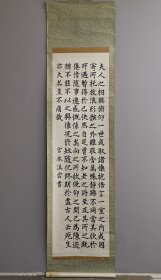 夫人之相與俯仰一世或取諸懷抱悟言一室之內或因
寄所託放浪形骸之外雖取舍萬殊靜躁不同當其欣於
所遇暫得於己快然自足曾不知老之將至及其所之既
惓情隨事遷感慨係之矣向之所欣俛仰之間以為陳迹
猶不能不以之興懷況脩短隨化終期於盡古人云死生
亦大矣豈不痛哉